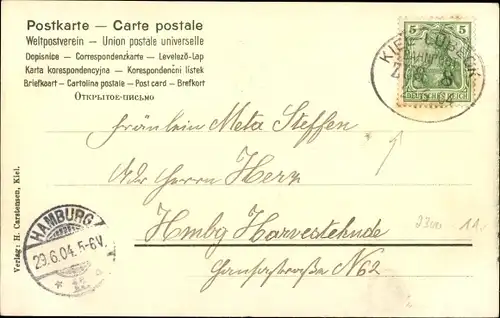 Postkarte — Carte postale
Weltpostverein — Union postale universelle
Dopisnice — Correspondenzkarte — Levelező-Lap
Karta korespondencyjna — Korespondenční lístek
Briefkaart — Cartolina postale — Post card — Brefkort
Открытое-письмо
5 5
DEUTSCHES REICH
KIEL-LÜBECK
Fräulein Meta Steffen
Adr Herrn Herz
Hmbg Harvestehude
Hansastraße No 62
2300 11.-
HAMBURG
29.6.04. 5-6V.
Verlag: H. Carstensen, Kiel.